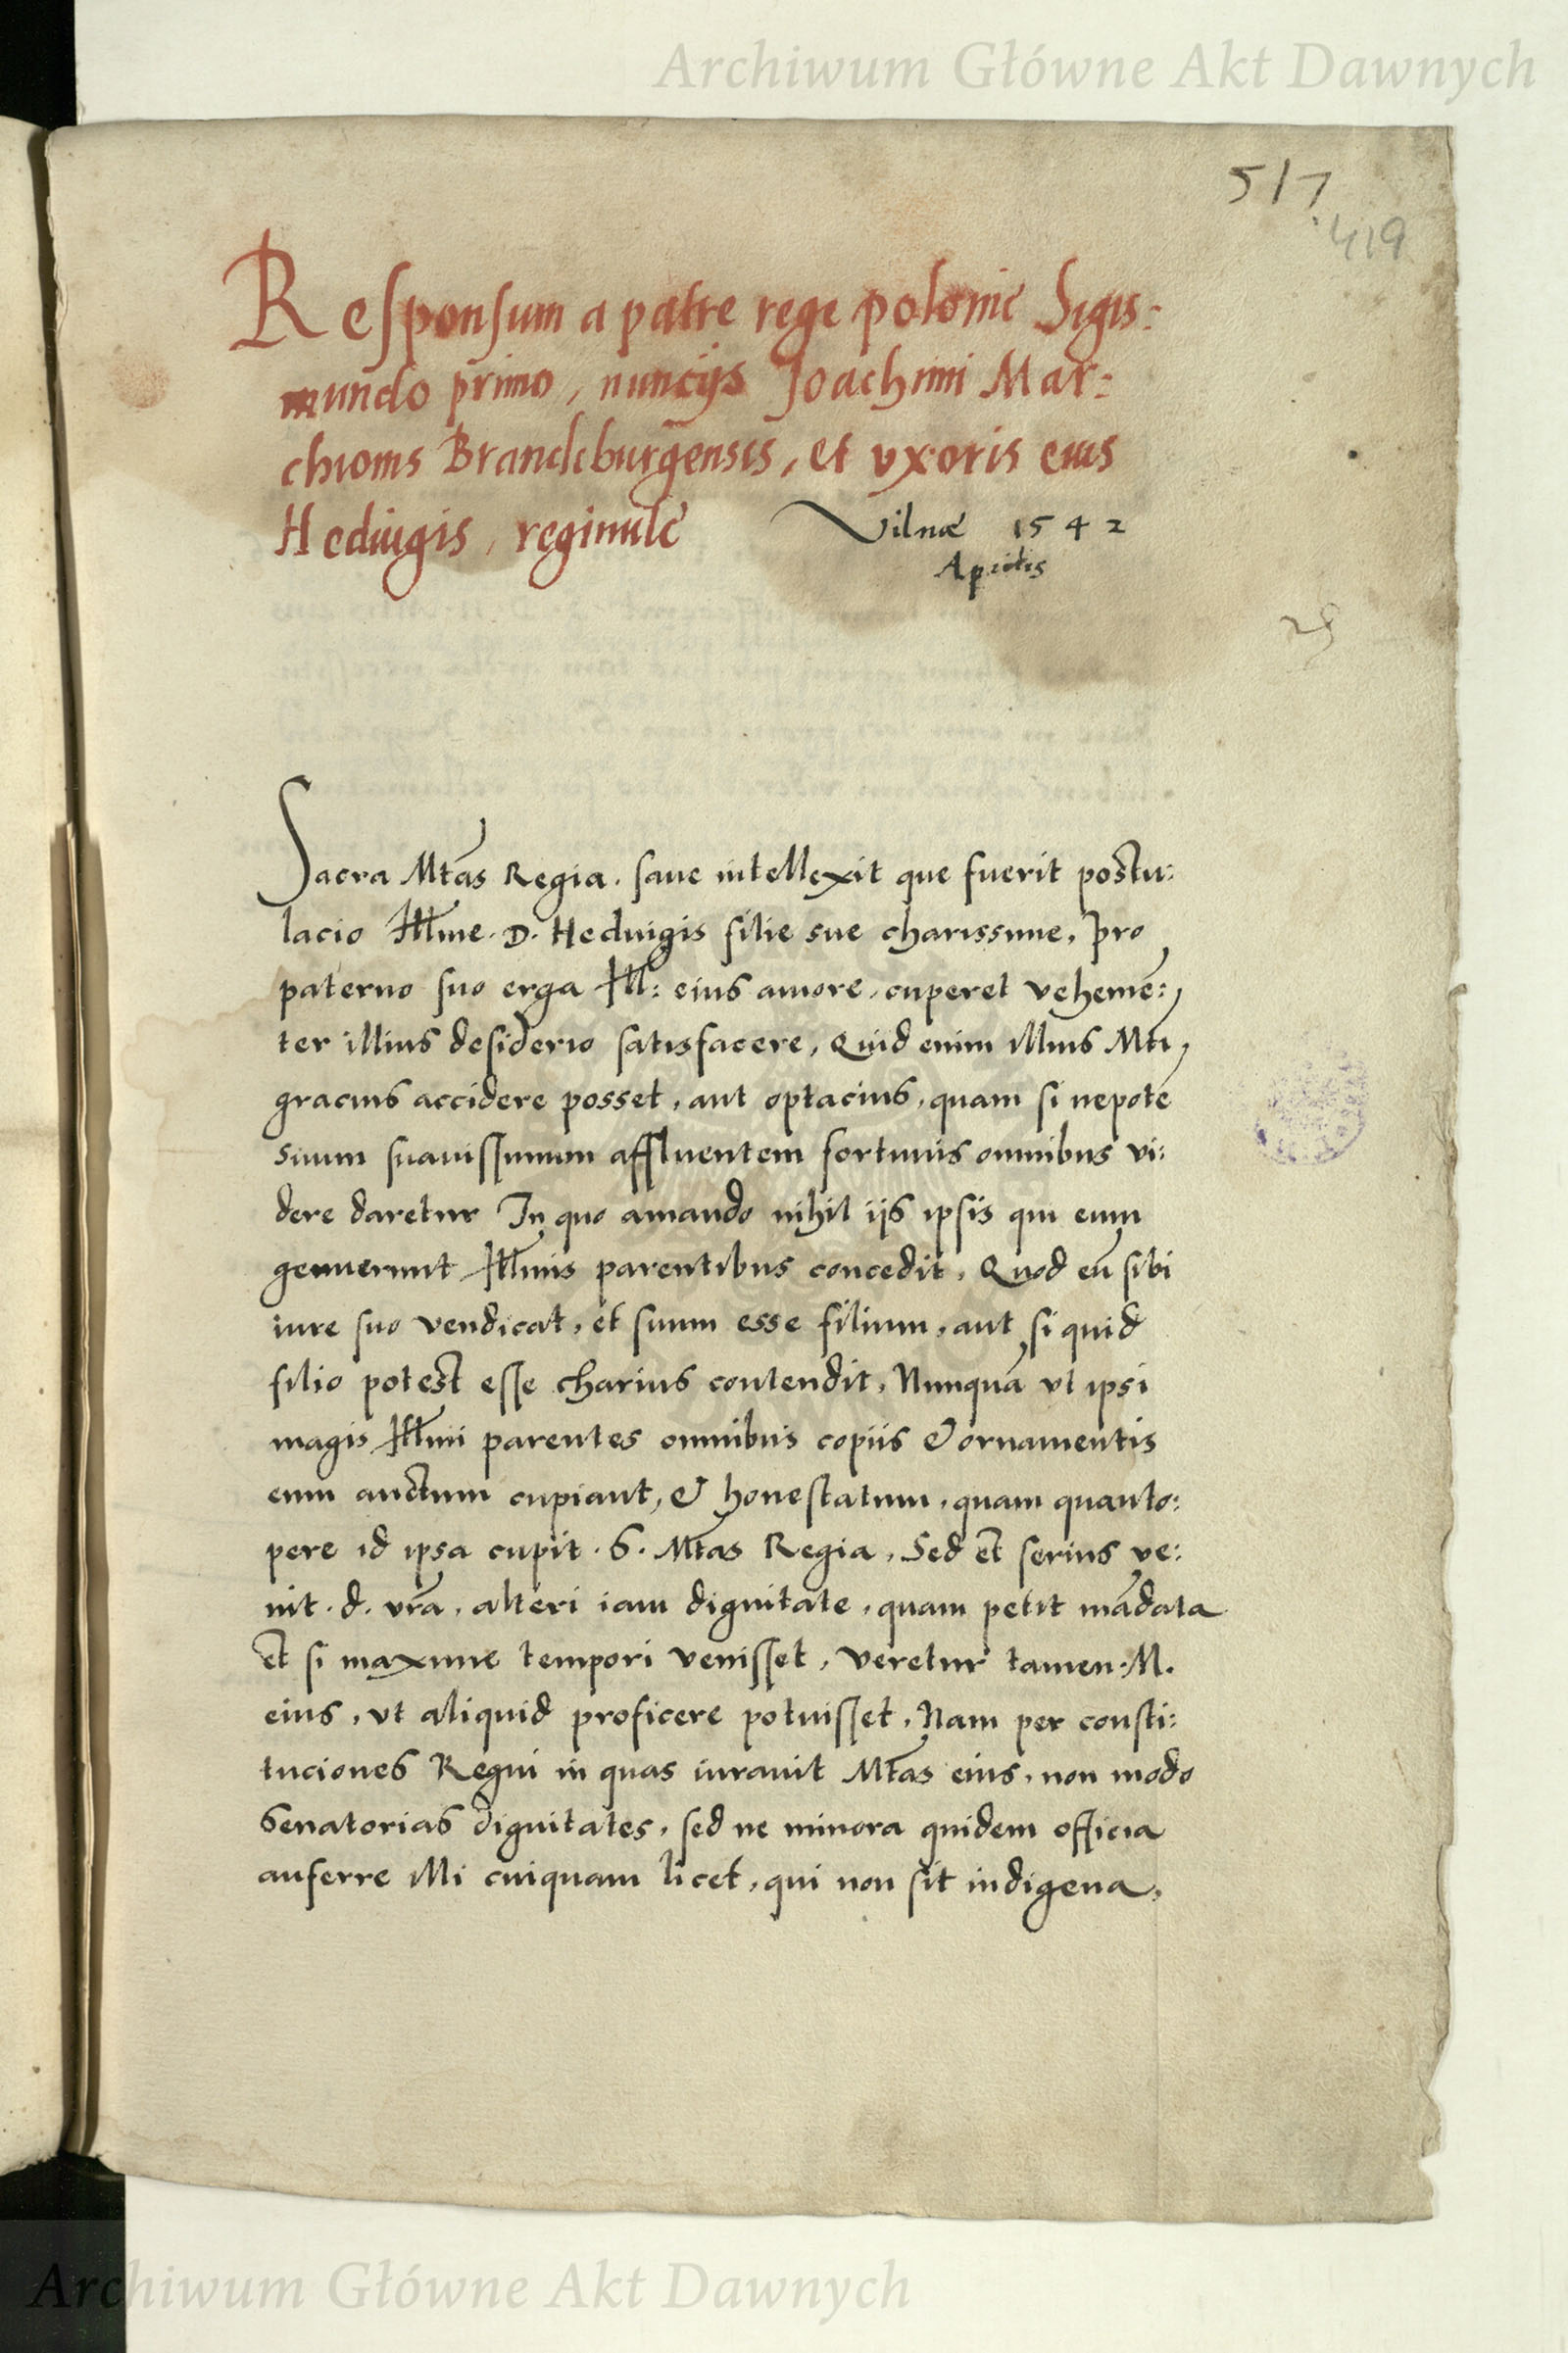 Archiwum Główne Akt Dawnych
517
419
Responsum a patre rege polonie Sigis:
mundo primo, nuncijs Joachimi Mar:
chionis Brandeburgensis, et uxoris eius
Hediugis, reginule
Vilnæ 1542
Aprilis
Sacra Mtas Regia. sane intellexit que fuerit postu:
lacio Illme. D. Heduigis filie sue charissime, pro
paterno suo erga Ill: eius amore, cuperet vehemē:
ter illius desiderio satisfacere, Quid enim illius Mti
gracius accidere posset, aut optacius, quam si nepotē
suum suauissimum affluentem fortunis omnibus vi:
dere daretur In quo amando nihil ijs ipsis qui eum
genuerunt Illmis parentibus concedit, Quod eū sibi
iure suo vendicat, et suum esse filium, aut si quid
filio potest esse charius contendit, Nunquā ut ipsi
magis Illmi parentes omnibus copiis & ornamentis
eum auctum cupiant, & honestatum, quam quanto:
pere id ipsa cupit. S. Mtas Regia, Sed et serius ve:
nit. d. vrā. alteri iam dignitate, quam petit mādata
et si maxime tempori venisset, veretur tamen. M.
eius, ut aliquid proficere potuisset, Nam per consti:
tuciones Regni in quas iurauit Mtas eius, non modo
Senatorias dignitates, sed ne minora quidem officia
auferre Mi cuiquam licet, qui non sit indigena,
Archiwum Główne Akt Dawnych